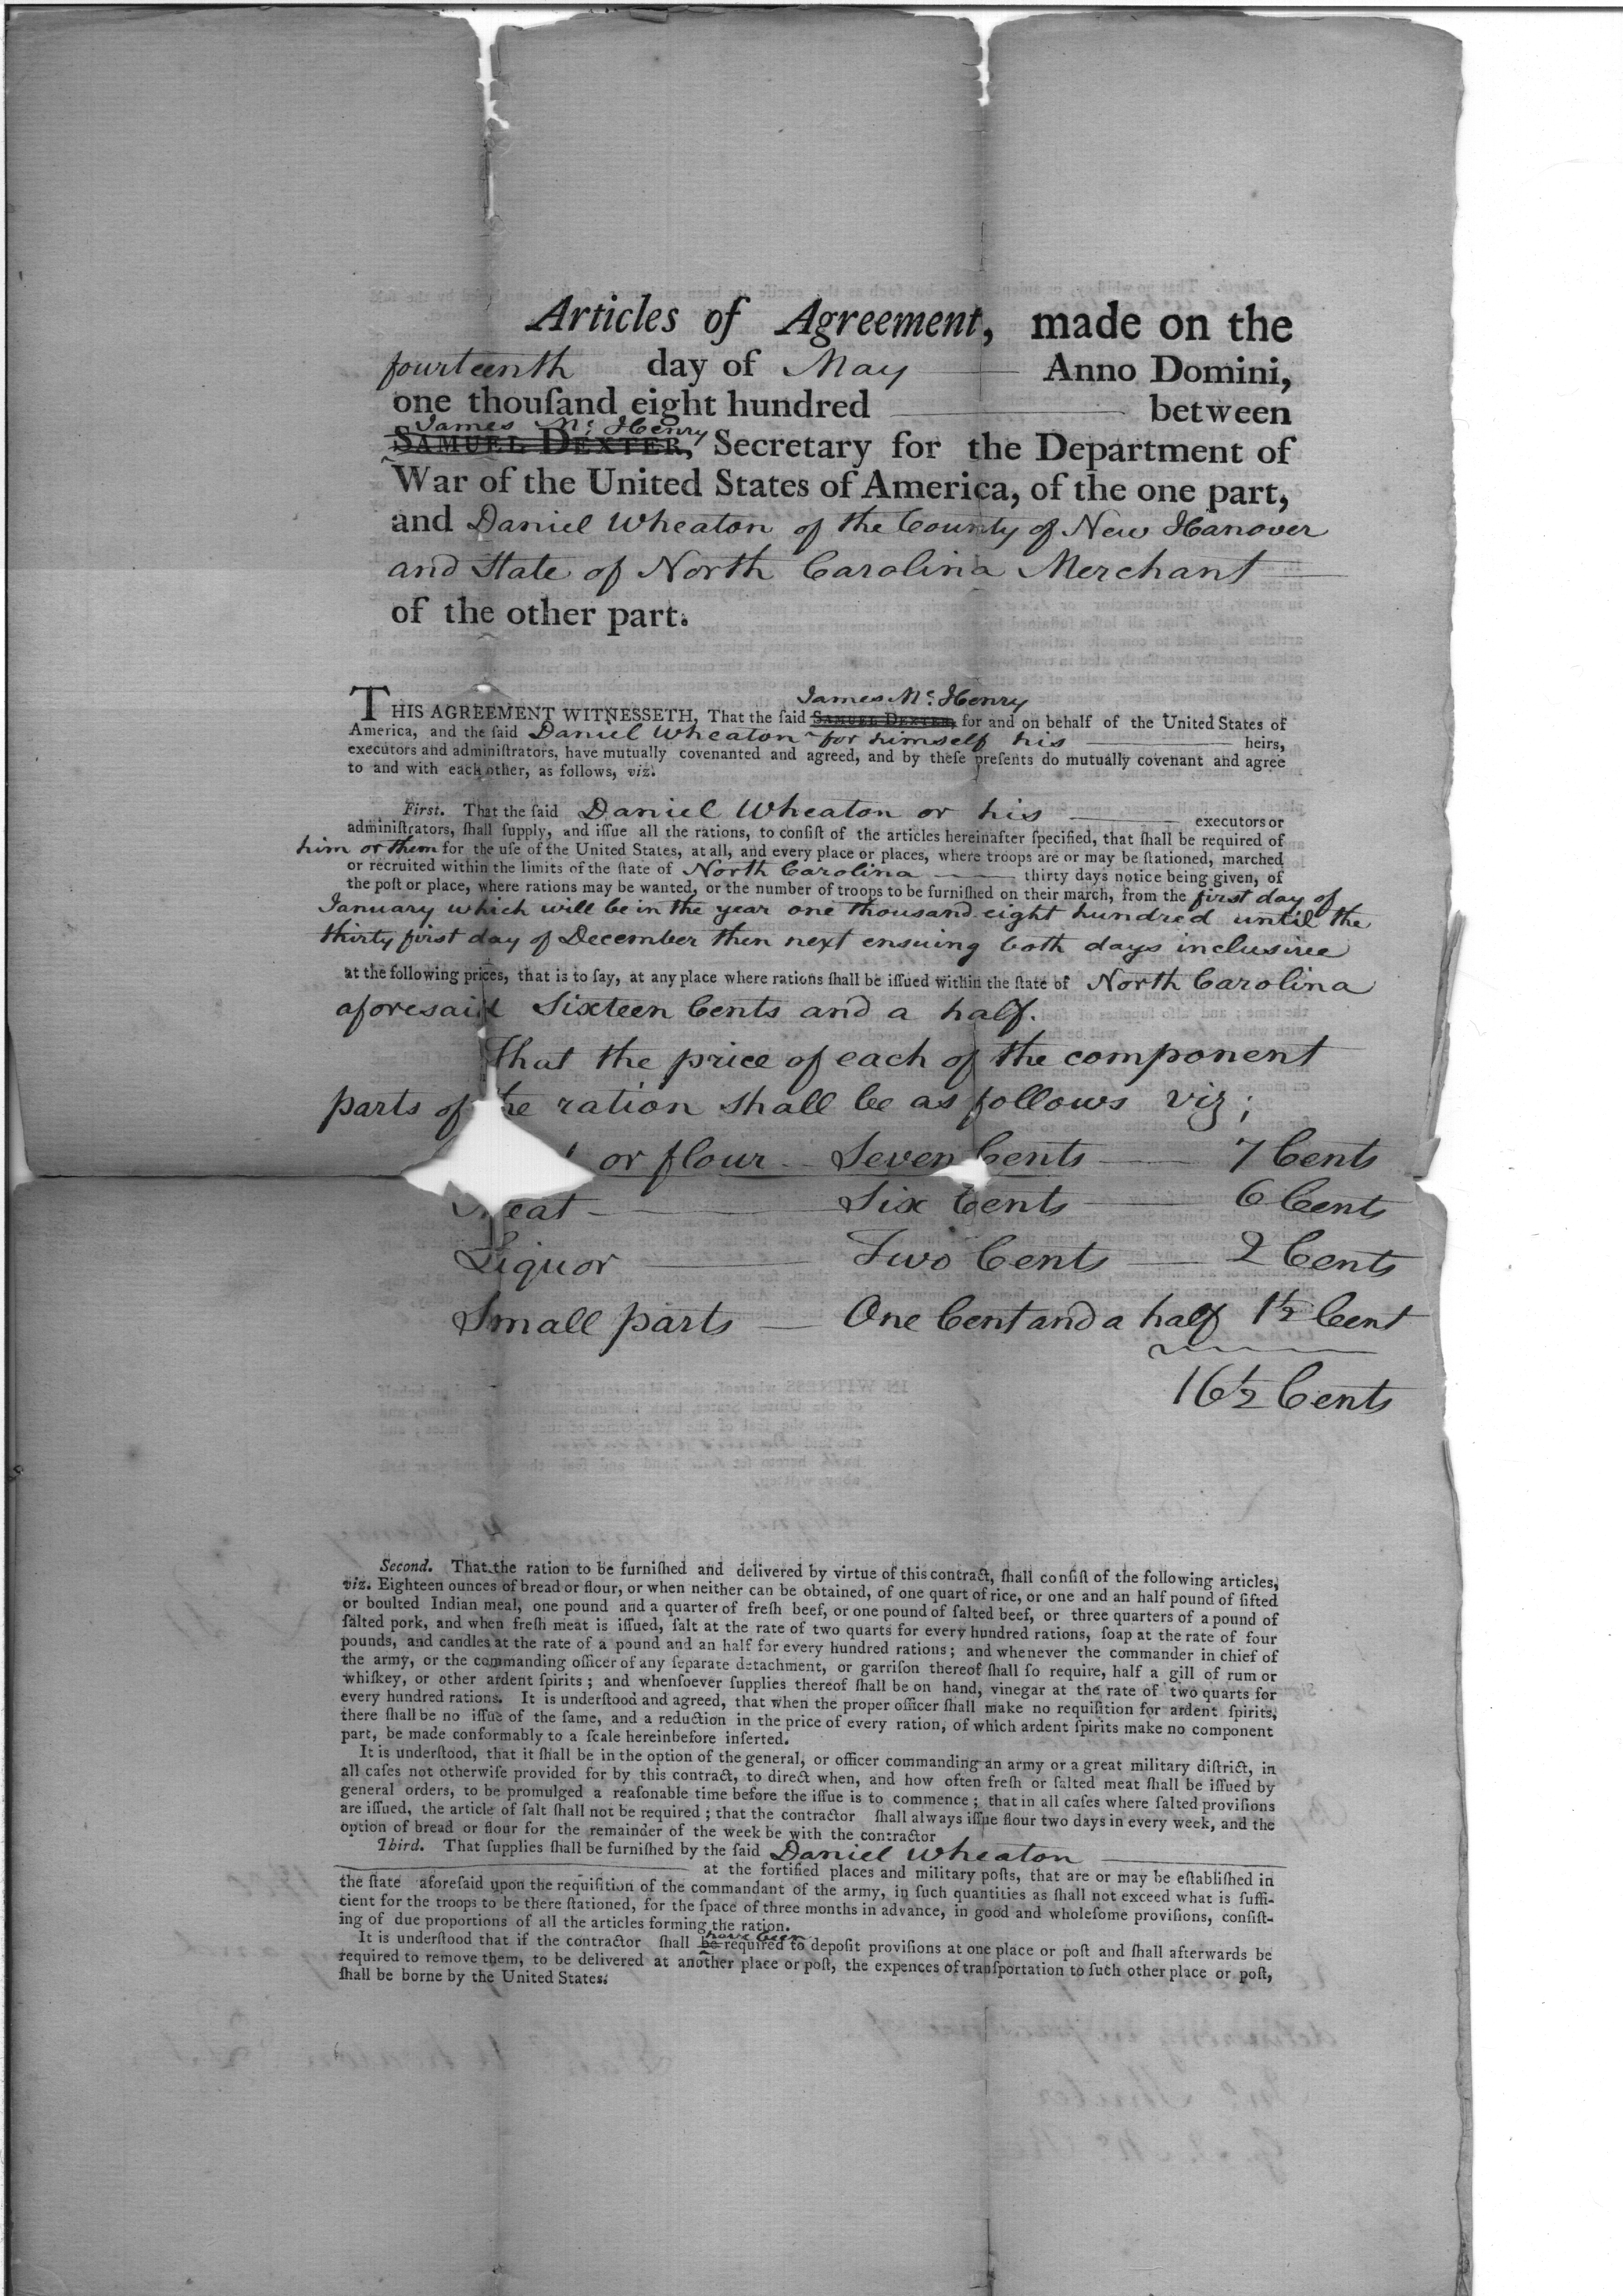 Articles of Agreement, made on the
fourteenth day of May — Anno Domini,
one thouſand eight hundred — between
James Mc. Henry
SAMUEL DEXTER, Secretary for the Department of
War of the United States of America, of the one part,
and Daniel Wheaton of the County of New Hanover
and State of North Carolina Merchant —
of the other part.
James Mc. Henry
THIS AGREEMENT WITNESSETH, That the ſaid SAMUEL DEXTER, for and on behalf of the United States of
America, and the ſaid Daniel Wheaton for himself his — heirs,
executors and adminiſtrators, have mutually covenanted and agreed, and by theſe preſents do mutually covenant and agree
to and with each other, as follows, viz.
Firſt. That the ſaid Daniel Wheaton or his — executors or
adminiſtrators, ſhall ſupply, and iſſue all the rations, to conſiſt of the articles hereinafter ſpecified, that ſhall be required of
him or them for the uſe of the United States, at all, and every place or places, where troops are or may be ſtationed, marched
or recruited within the limits of the ſtate of North Carolina — thirty days notice being given, of
the poſt or place, where rations may be wanted, or the number of troops to be furniſhed on their march, from the first day of
January which will be in the year one thousand eight hundred until the
thirty first day of December then next ensuing both days inclusive
at the following prices, that is to ſay, at any place where rations ſhall be iſſued within the ſtate of North Carolina
aforesaid Sixteen Cents and a half.
That the price of each of the component
parts of the ration shall be as follows viz;
or flour — Seven Cents — 7 Cents
Meat — Six Cents — 6 Cents
Liquor — Two Cents — 2 Cents
Small parts — One Cent and a half 1½ Cent
16½ Cents
Second. That the ration to be furniſhed and delivered by virtue of this contract, ſhall conſiſt of the following articles,
viz. Eighteen ounces of bread or flour, or when neither can be obtained, of one quart of rice, or one and an half pound of ſifted
or boulted Indian meal, one pound and a quarter of freſh beef, or one pound of ſalted beef, or three quarters of a pound of
ſalted pork, and when freſh meat is iſſued, ſalt at the rate of two quarts for every hundred rations, ſoap at the rate of four
pounds, and candles at the rate of a pound and an half for every hundred rations; and whenever the commander in chief of
the army, or the commanding officer of any ſeparate detachment, or garriſon thereof ſhall ſo require, half a gill of rum or
whiſkey, or other ardent ſpirits; and whenſoever ſupplies thereof ſhall be on hand, vinegar at the rate of two quarts for
every hundred rations. It is underſtood and agreed, that when the proper officer ſhall make no requiſition for ardent ſpirits,
there ſhall be no iſſue of the ſame, and a reduction in the price of every ration, of which ardent ſpirits make no component
part, be made conformably to a ſcale hereinbefore inſerted.
It is underſtood, that it ſhall be in the option of the general, or officer commanding an army or a great military diſtrict, in
all caſes not otherwiſe provided for by this contract, to direct when, and how often freſh or ſalted meat ſhall be iſſued by
general orders, to be promulged a reaſonable time before the iſſue is to commence; that in all caſes where ſalted proviſions
are iſſued, the article of ſalt ſhall not be required; that the contractor ſhall always iſſue flour two days in every week, and the
option of bread or flour for the remainder of the week be with the contractor
Third. That ſupplies ſhall be furniſhed by the ſaid Daniel Wheaton —
— at the fortified places and military poſts, that are or may be eſtabliſhed in
the ſtate aforeſaid upon the requiſition of the commandant of the army, in ſuch quantities as ſhall not exceed what is ſuffi-
cient for the troops to be there ſtationed, for the ſpace of three months in advance, in good and wholeſome proviſions, conſiſt-
ing of due proportions of all the articles forming the ration.
have been
It is underſtood that if the contractor ſhall be required to depoſit proviſions at one place or poſt and ſhall afterwards be
required to remove them, to be delivered at another place or poſt, the expences of tranſportation to ſuch other place or poſt,
ſhall be borne by the United States.